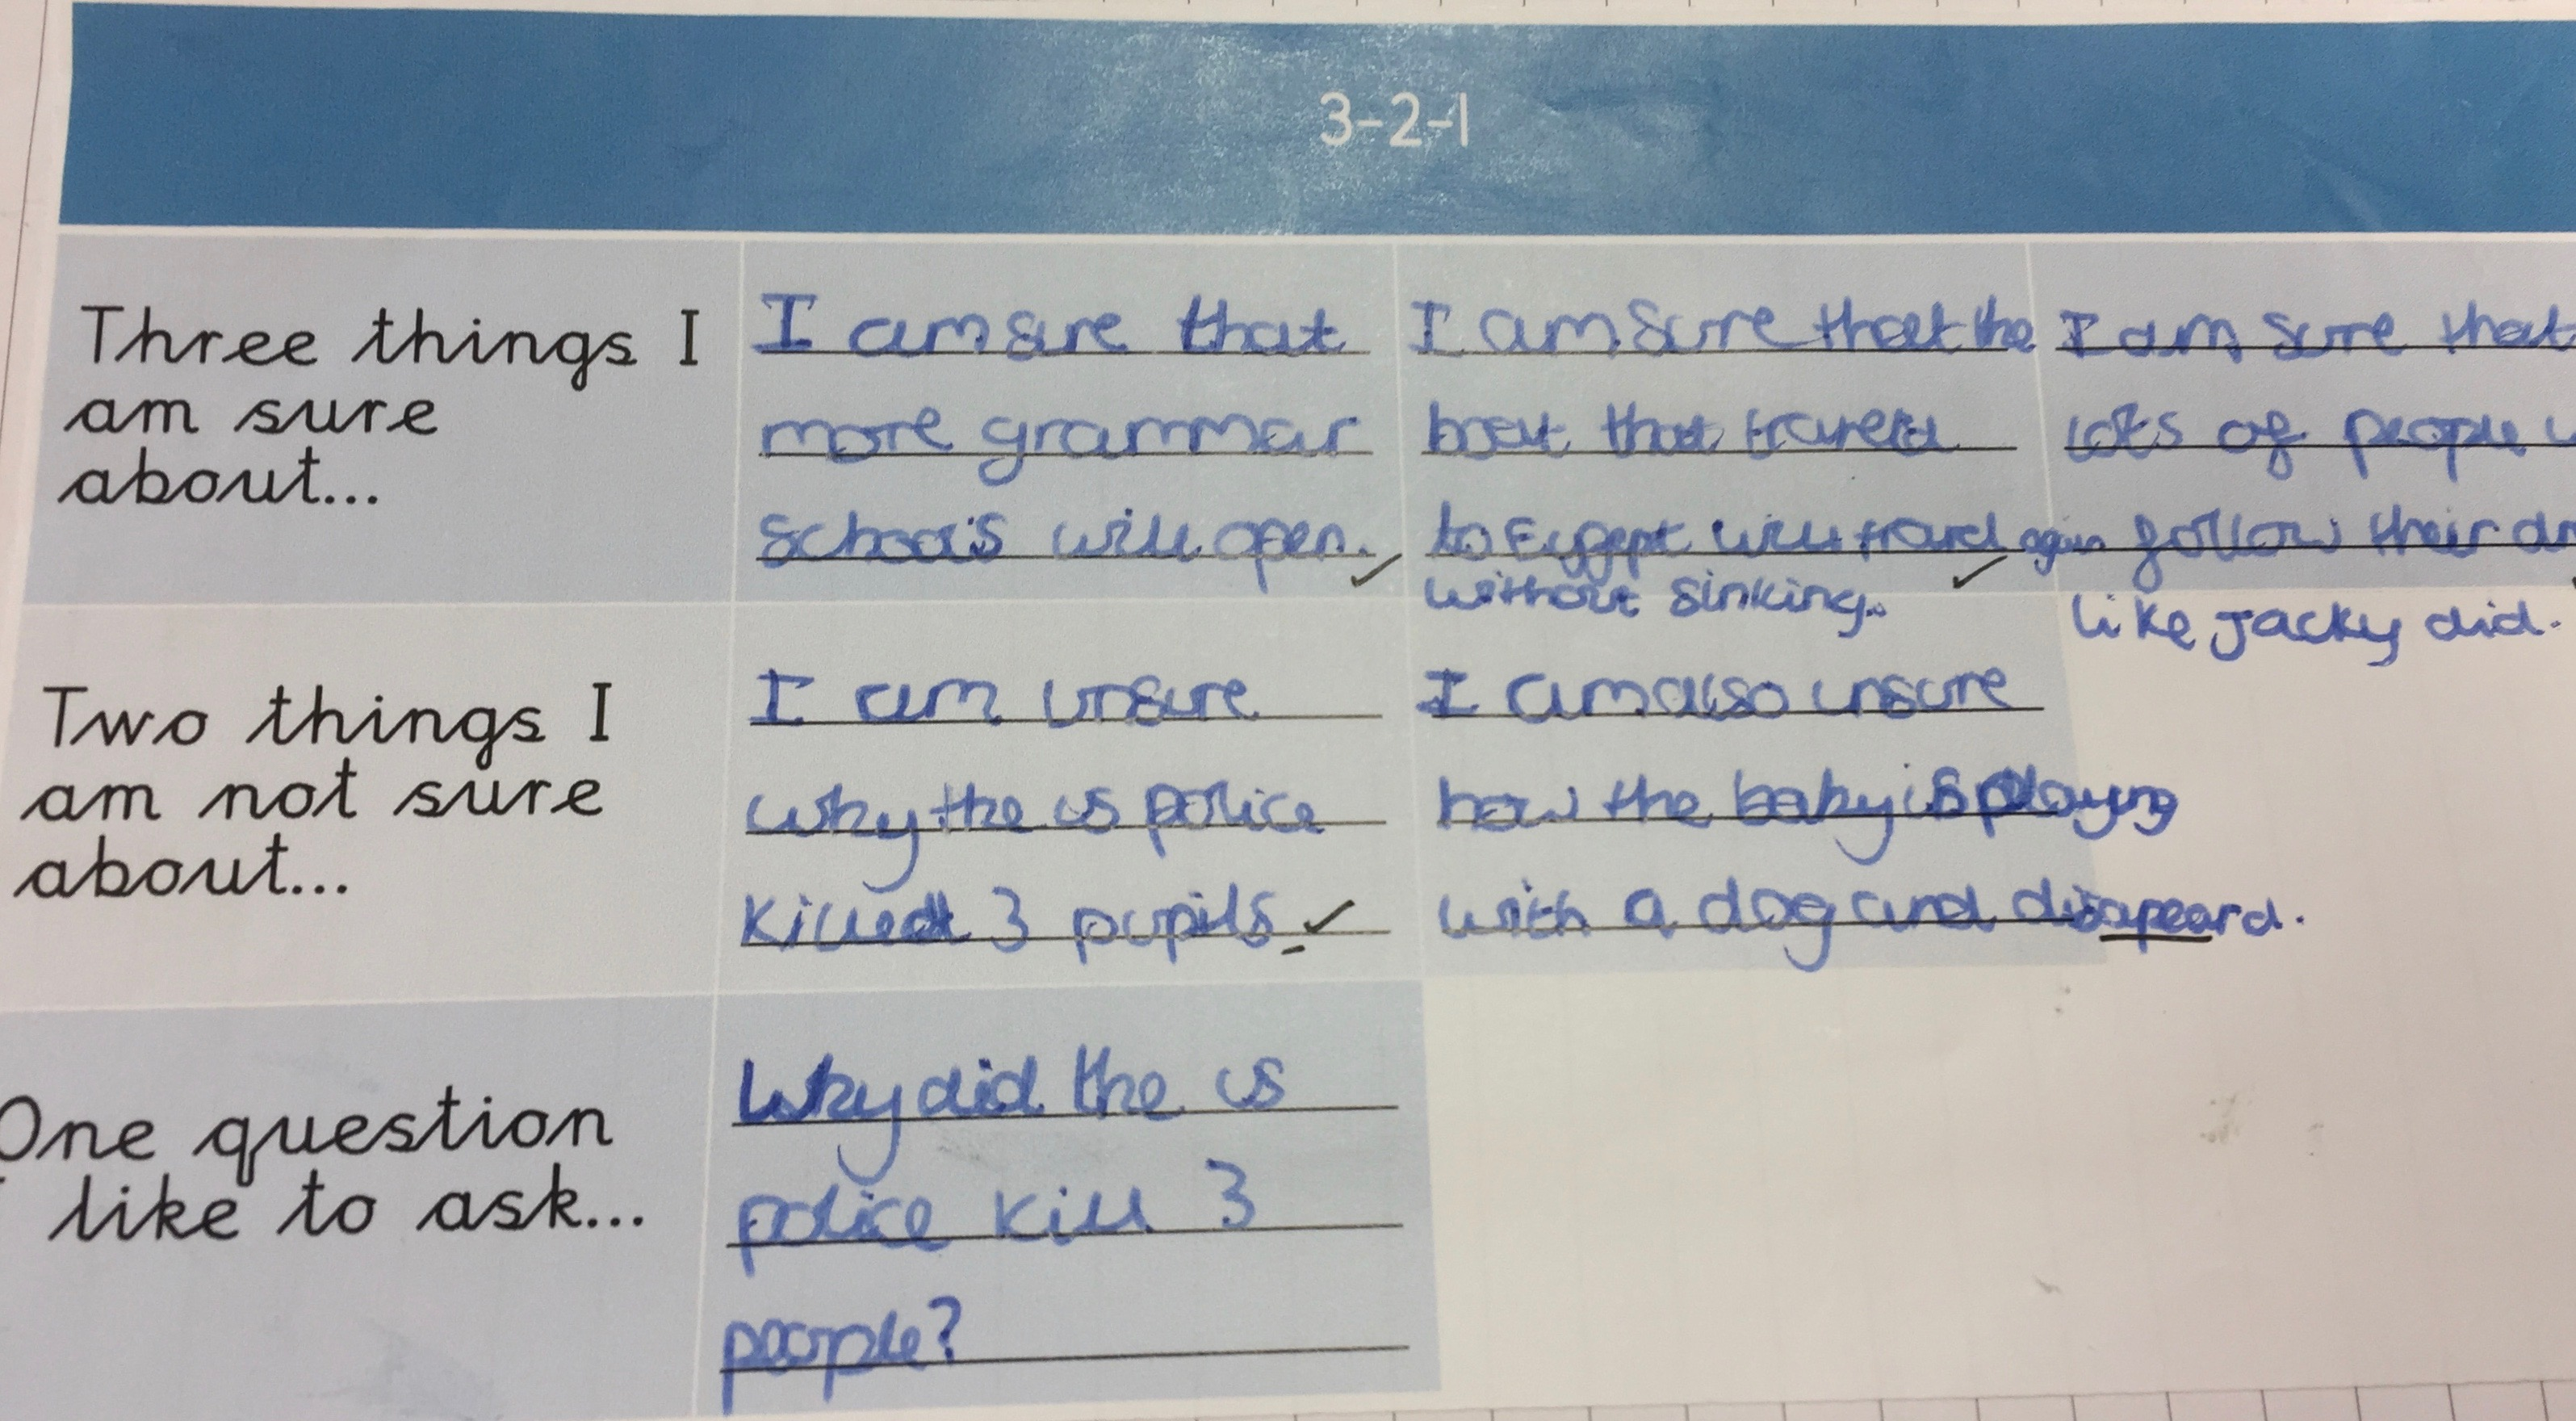 3-2-1
Three things I
am sure
about...
I am sure that
more grammar
schools will open.
I am sure that the
boat that traveld
to Egypt will travel again
without sinking.
I am sure that
lots of people
follow their
like Jacky did.
Two things I
am not sure
about...
I am unsure
why the us police
killed 3 pupils.
I am also unsure
how the baby is playing
with a dog and disapeard.
One question
like to ask...
Why did the us
police kill 3
people?